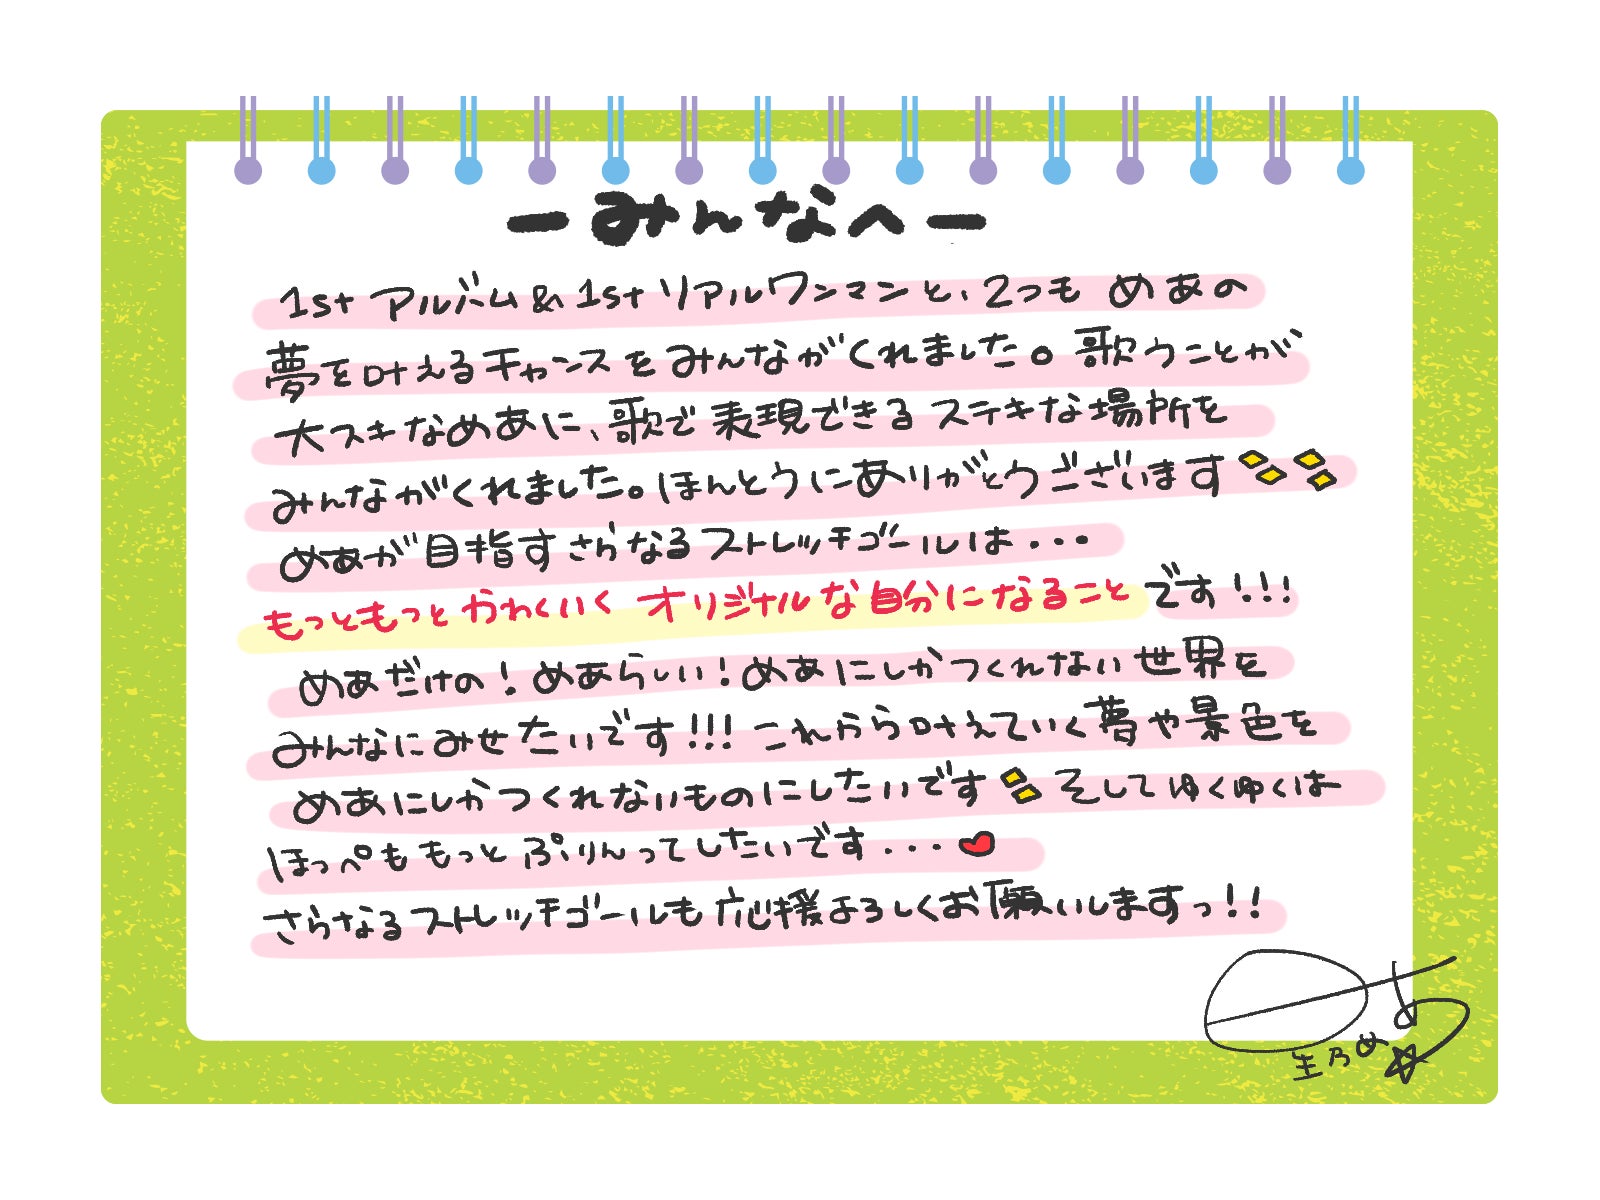 ーみんなへー
1st アルバム & 1st リアルワンマンと、2つも めあの
夢を叶えるチャンスをみんながくれました。歌うことが
大スキなめあに、歌で表現できるステキな場所を
みんながくれました。ほんとうにありがとうございます
めあが目指すさらなるストレッチゴールは・・・
もっともっとかわいく オリジナルな自分になること です!!!
めあだけの!めあらしい!めあにしかつくれない世界を
みんなにみせたいです!!!これから叶えていく夢や景色を
めあにしかつくれないものにしたいです そしてゆくゆくは
ほっぺももっとぷりんってしたいです・・・
さらなるストレッチゴールも応援よろしくお願いしますっ!!